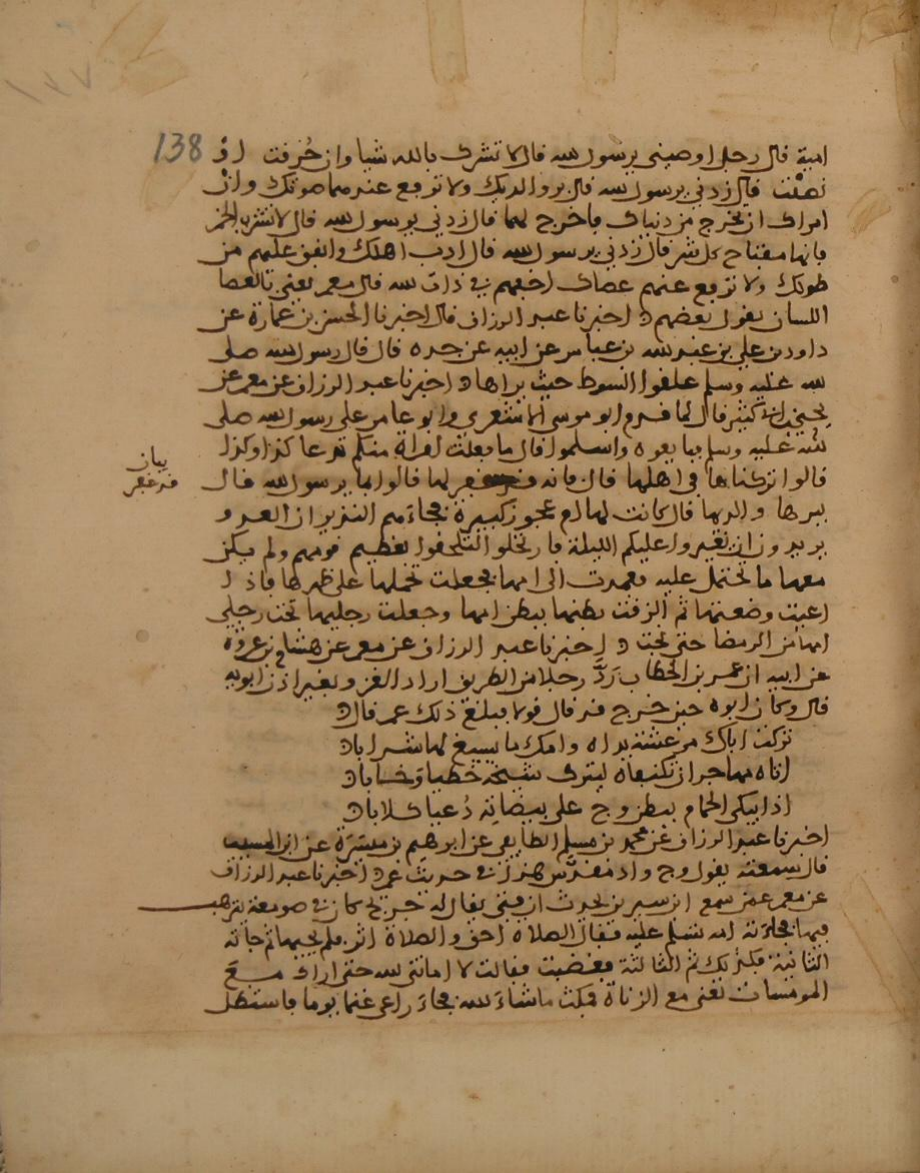 138
امية قال رجل اوصيني يرسول الله قال لا تشرك بالله شيا وان حُرقت اوْ
نصفت قال زدني يرسول الله قال بر والديك ولا ترفع عندهما صوتك وانْ
امراك ان تخرج من دنياك فاخرج لهما قال زدني يرسول الله قال لا تشرب الخمر
فانها مفتاح كل شر قال زدني يرسول الله قال ادب اهلك وانفق عليهم من
طولك ولا ترفع عنهم عصاك اخفهم في ذات الله قال معمر يعني بالعصا
اللسان يقول بعضهم اخبرنا عبد الرزاق قال اخبرنا الحسن بن عمارة عن
داود بن علي بن عبد الله بن عباس عن ابيه عن جده قال قال رسول الله صلى
الله عليه وسلم علقوا السوط حيث يراها اخبرنا عبد الرزاق عن معمر عن
يحيى بن ابي كثير قال لما قدم ابو موسى الاشعري وابو عامر على رسول الله صلى
الله عليه وسلم فبايعوه واسلموا قال ما فعلت امراة منكم تدعا كذا وكذا
قالوا تركناها في اهلها قال فانه قد غفر لها قالوا لما يرسول الله قال
بيان
قد غفر
ببرها والدتها قال كانت لها ام عجوز كبيرة فجاءهم النذير ان العدو
يريدون ان يغيروا عليكم الليلة فارتحلوا ليلحقوا بعظيم قومهم ولم يكن
معها ما تحتمل عليه فعمدت الى امها فجعلت تحملها على ظهرها فاذا
اعيت وضعتها ثم الزقت بطنها ببطن امها وجعلت رجليها تحت رجلي
امها من الرمضا حتى نجت اخبرنا عبد الرزاق عن معمر عن هشام بن عروة
عن ابيه ان عمر بن الخطاب رَدَّ رجلا من الطريق اراد الغزو بغير اذن ابويه
قال وكان ابوه حين خرج قد قال قولا فبلغ ذلك عمر قال
تركت اباك مرعشة يداه وامك ما يسيغ لها شرابا
اتاه مهاجران تكنفاه ليترك شيخه خطيا وخابا
اذا يبكي الحمام ببطن وج على بيضاته دعيا كلابا
اخبرنا عبد الرزاق عن محمد بن مسلم الطايفي عن ابرهيم بن ميسَرَة عن ابن المسيب
قال سمعته يقول وج واد مقدَّس هذا في حديث عمر اخبرنا عبد الرزاق
عن معمر عمن سمع ابن سيرين يحدث ان فتى يقال له جريج كان في صومعة يترهب
فيها فجاءته امه تسلم عليه فقال الصلاة احق والصلاة اثر فلم يجبها ثم جاته
الثانية فكذلك ثم الثالثة فغضبت فقالت لا اماتني الله حتى اراك مع
المومسات تعني مع الزناة فمكث ما شاء الله فجاء راعي غنم يوما فاستظل